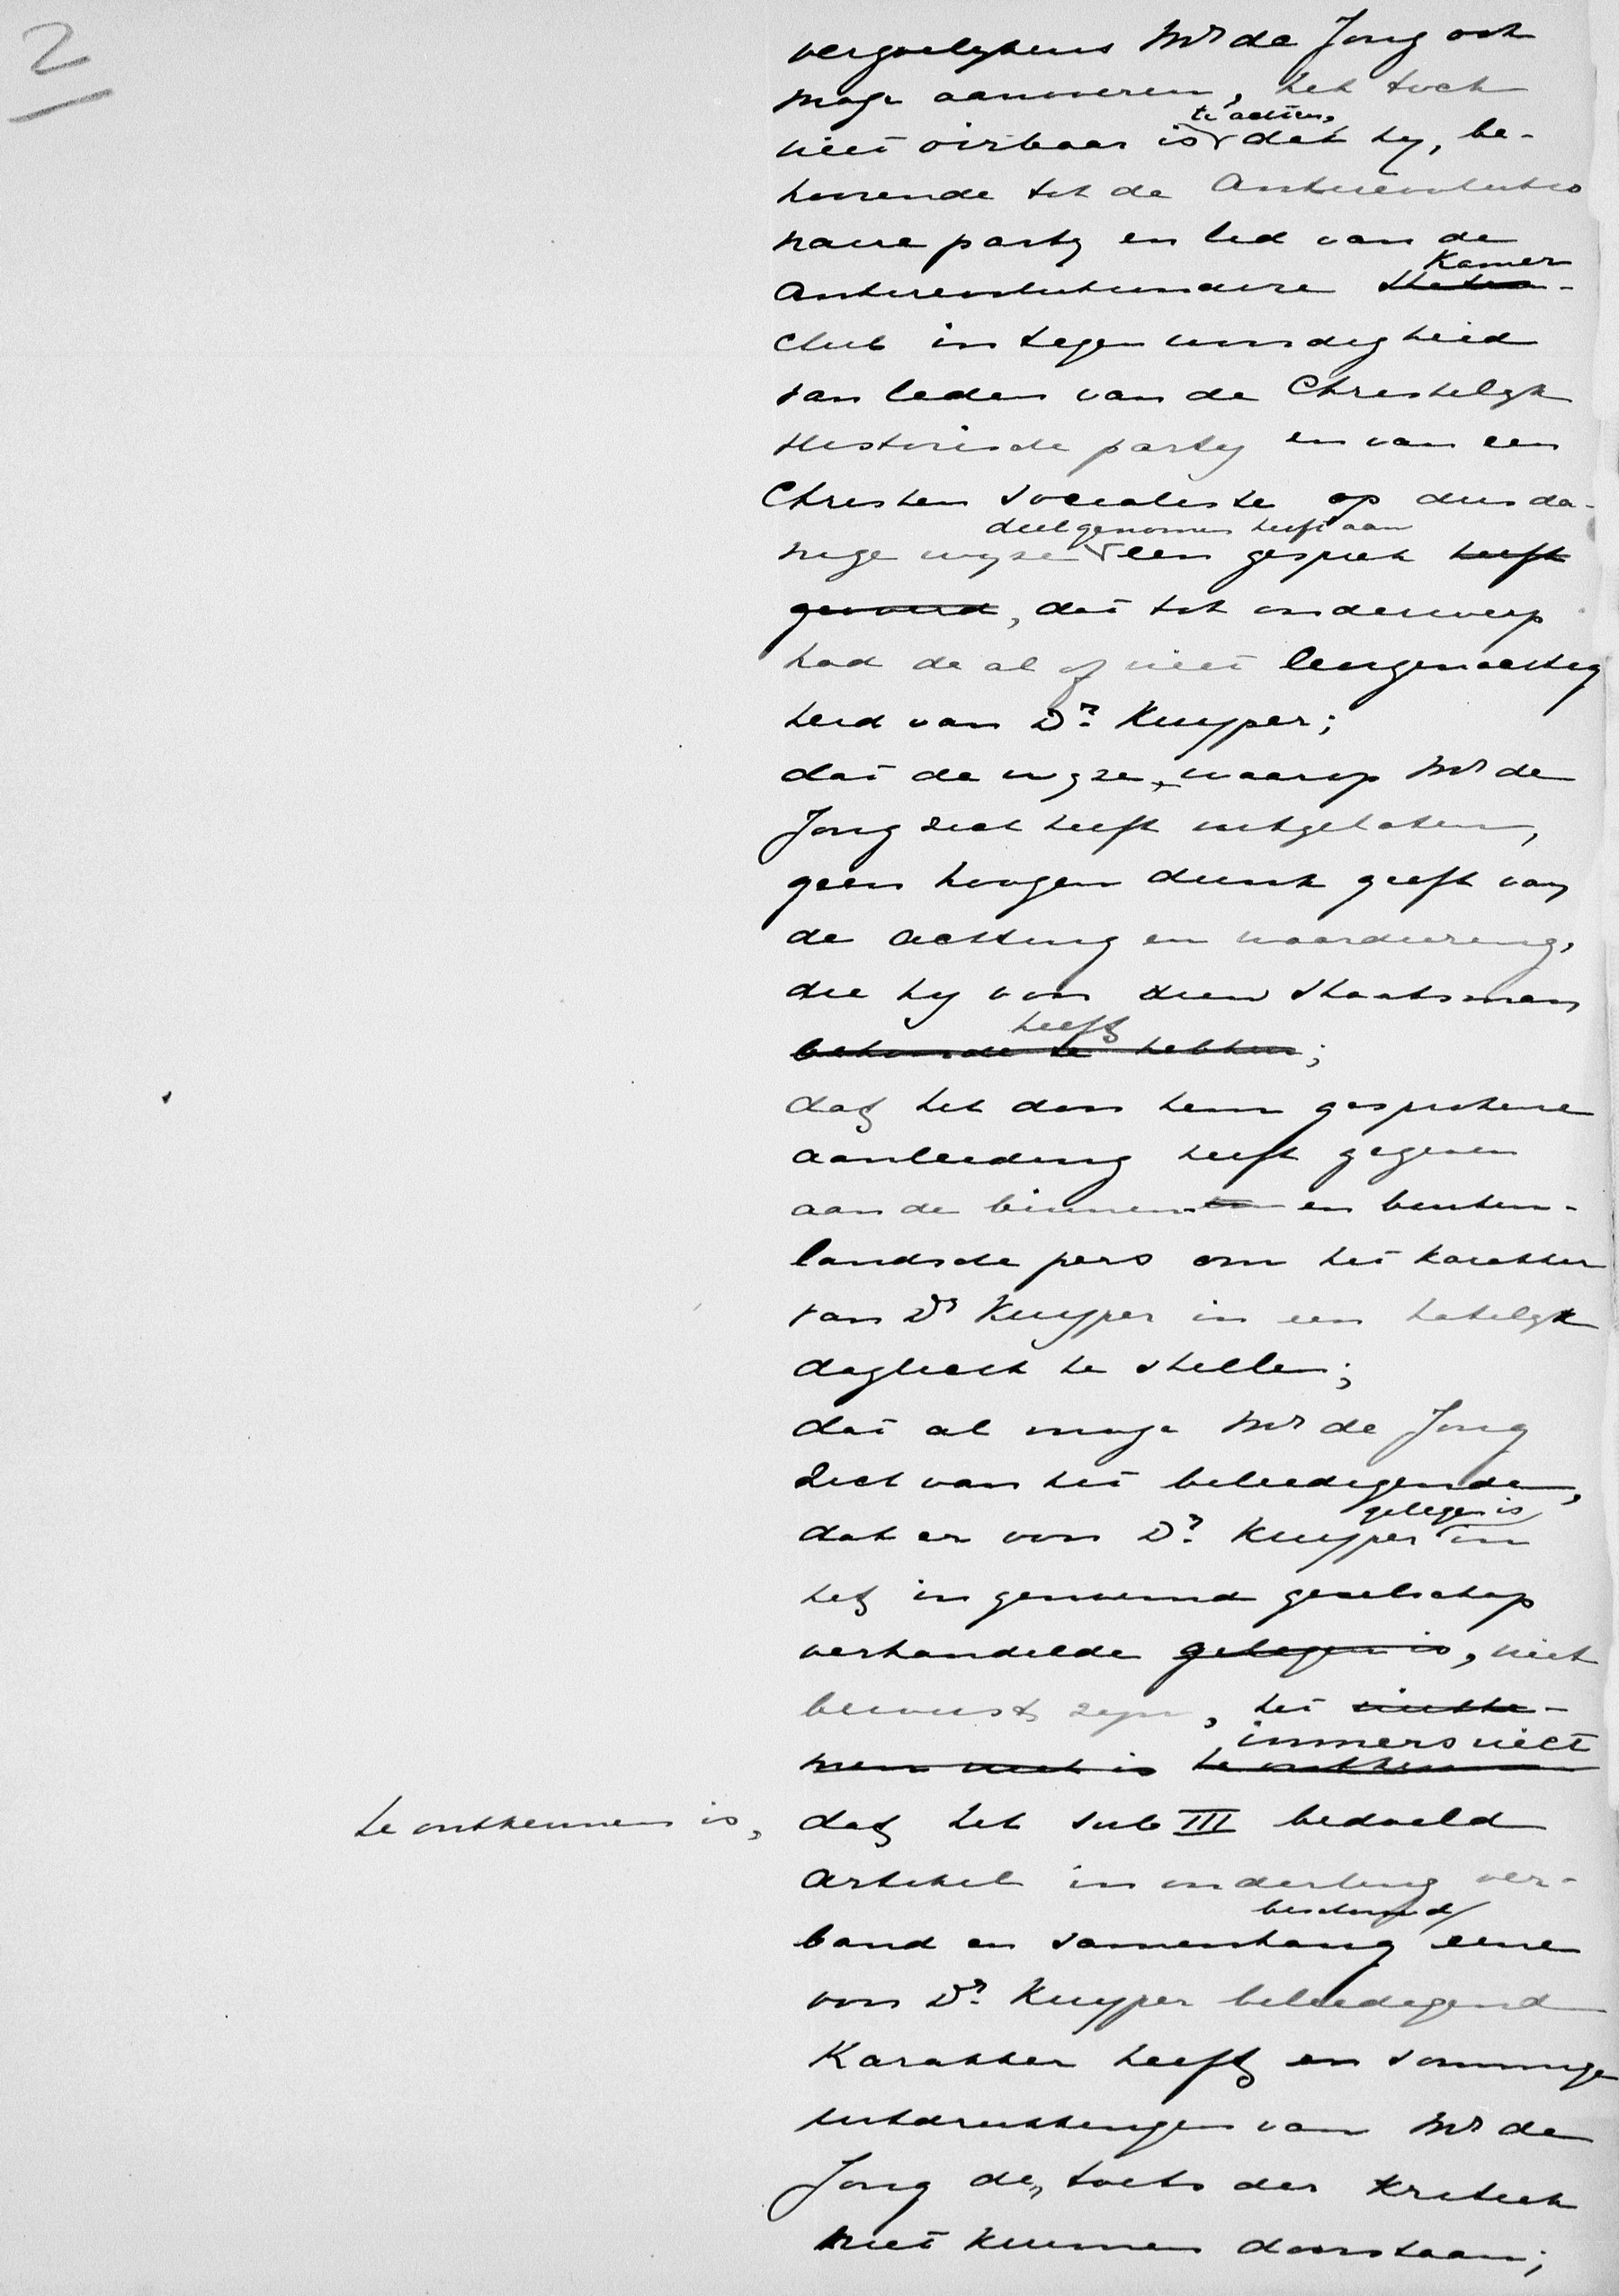 2
vergoelykens Mr de Jong ook
moge aanvoeren, het toch
te achten,
niet oirbaar is dat hy, be-
hoorende tot de Antirevolutio
naire party en lid van de
Kamer
Antirevolutionaire Staten-
club in tegenwoordigheid
van leden van de Christelyk
Historische party en van een
Christen Socialiste op dusda-
deelgenomen heeft aan
nige wyze een gesprek heeft
gevoerd, dat tot onderwerp
had de al of niet leugenachtig
heid van Dr. Kuyper;
dat de wyze, waarop Mr de
Jong zich heeft uitgelaten,
geen hoogen dunk geeft van
de achting en waardeering,
die hy voor dien Staatsman
heeft
behoorde te hebben;
dat het door hem gesprokene
aanleiding heeft gegeven
aan de binnen en buiten-
landsche pers om het karakter
van Dr Kuyper in een hatelyk
daglicht te stellen;
dat al moge Mr de Jong
zich van het beleedigende,
gelegen is
dat er voor Dr. Kuyper in
het in genoemd gezelschap
verhandelde gelegen is, niet
bewust zyn, het
immers niet
men niet is te ontkennen
te ontkennen is,
dat het sub III bedoeld
artikel in onderling ver-
beschouwd
band en samenhang eene
voor Dr. Kuyper beleedigend
Karakter heeft en sommige
uitdrukkingen van Mr de
Jong de toets der Kritiek
niet kunnen doorstaan;